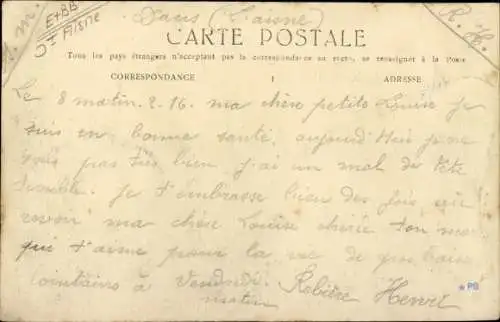 Dans (L'aisne)
E+BB
Dt Aisne
R. H.
CARTE POSTALE
Tous les pays étrangers n'acceptent pas la correspondance au recto, se renseigner à la Poste
CORRESPONDANCE
ADRESSE
Le 8 matin. 2. 16. ma chère petite Louise je
suis en bonne santé, aujourd'hui je ne
vais pas très bien j'ai un mal de tête
terrible. Je t'embrasse bien des fois au
revoir ma chère Louise chérie ton
qui t'aime pour la vie de
lointains à Vendredi. Rebière Henri
matin
PB